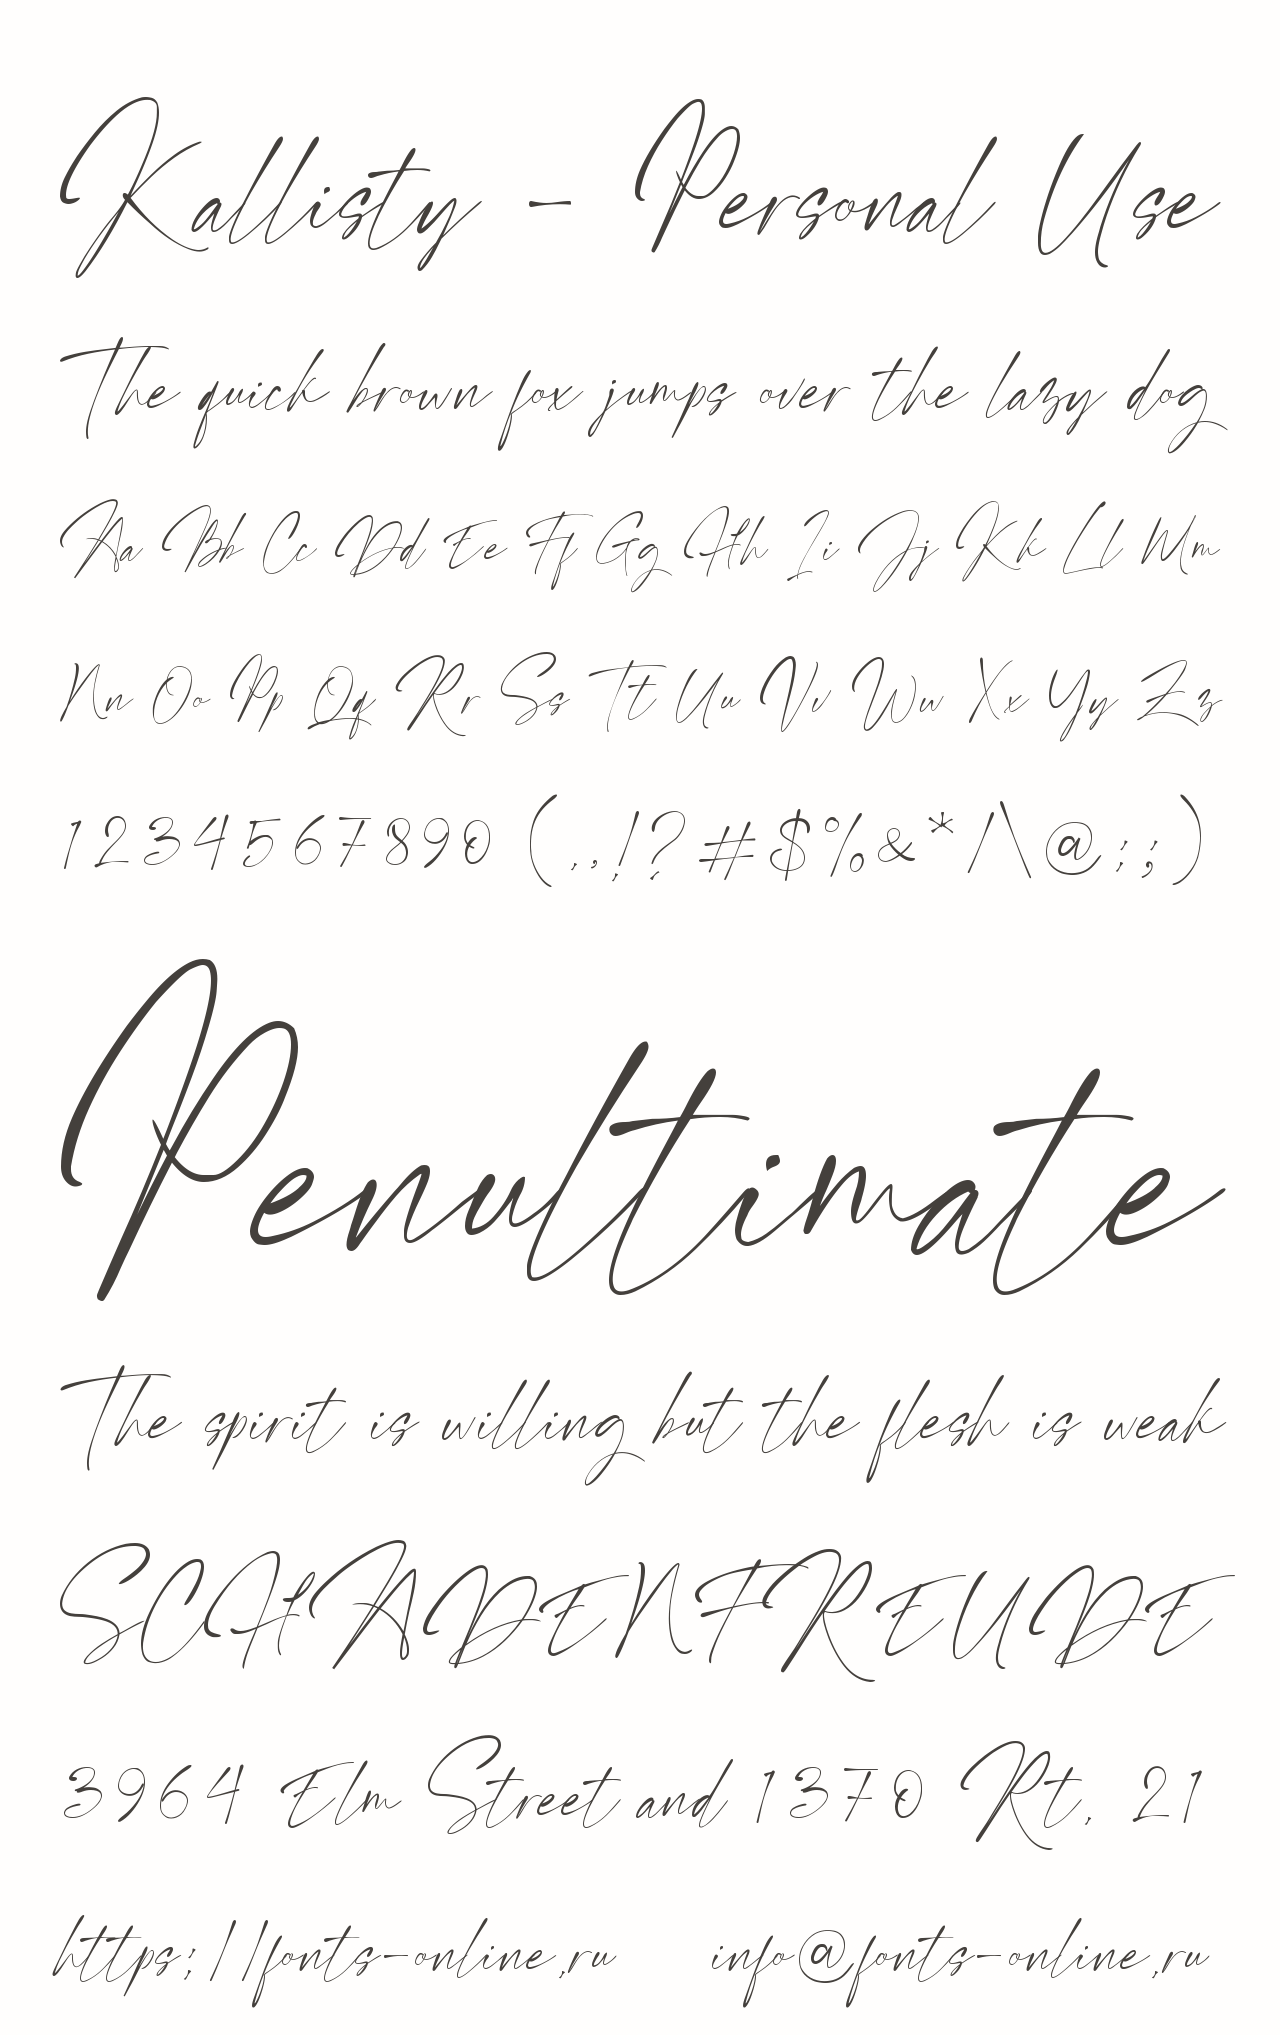 Kallisty - Personal Use
The quick brown fox jumps over the lazy dog
Aa Bb Cc Dd Ee Ff Gg Hh Ii Jj Kk Ll Mm
Nn Oo Pp Qq Rr Ss Tt Uu Vv Ww Xx Yy Zz
1234567890 (.,!?#$%&*/\@:;)
Penultimate
The spirit is willing but the flesh is weak
SCHADENFREUDE
3964 Elm Street and 1370 Rt. 21
https://fonts-online.ru info@fonts-online.ru